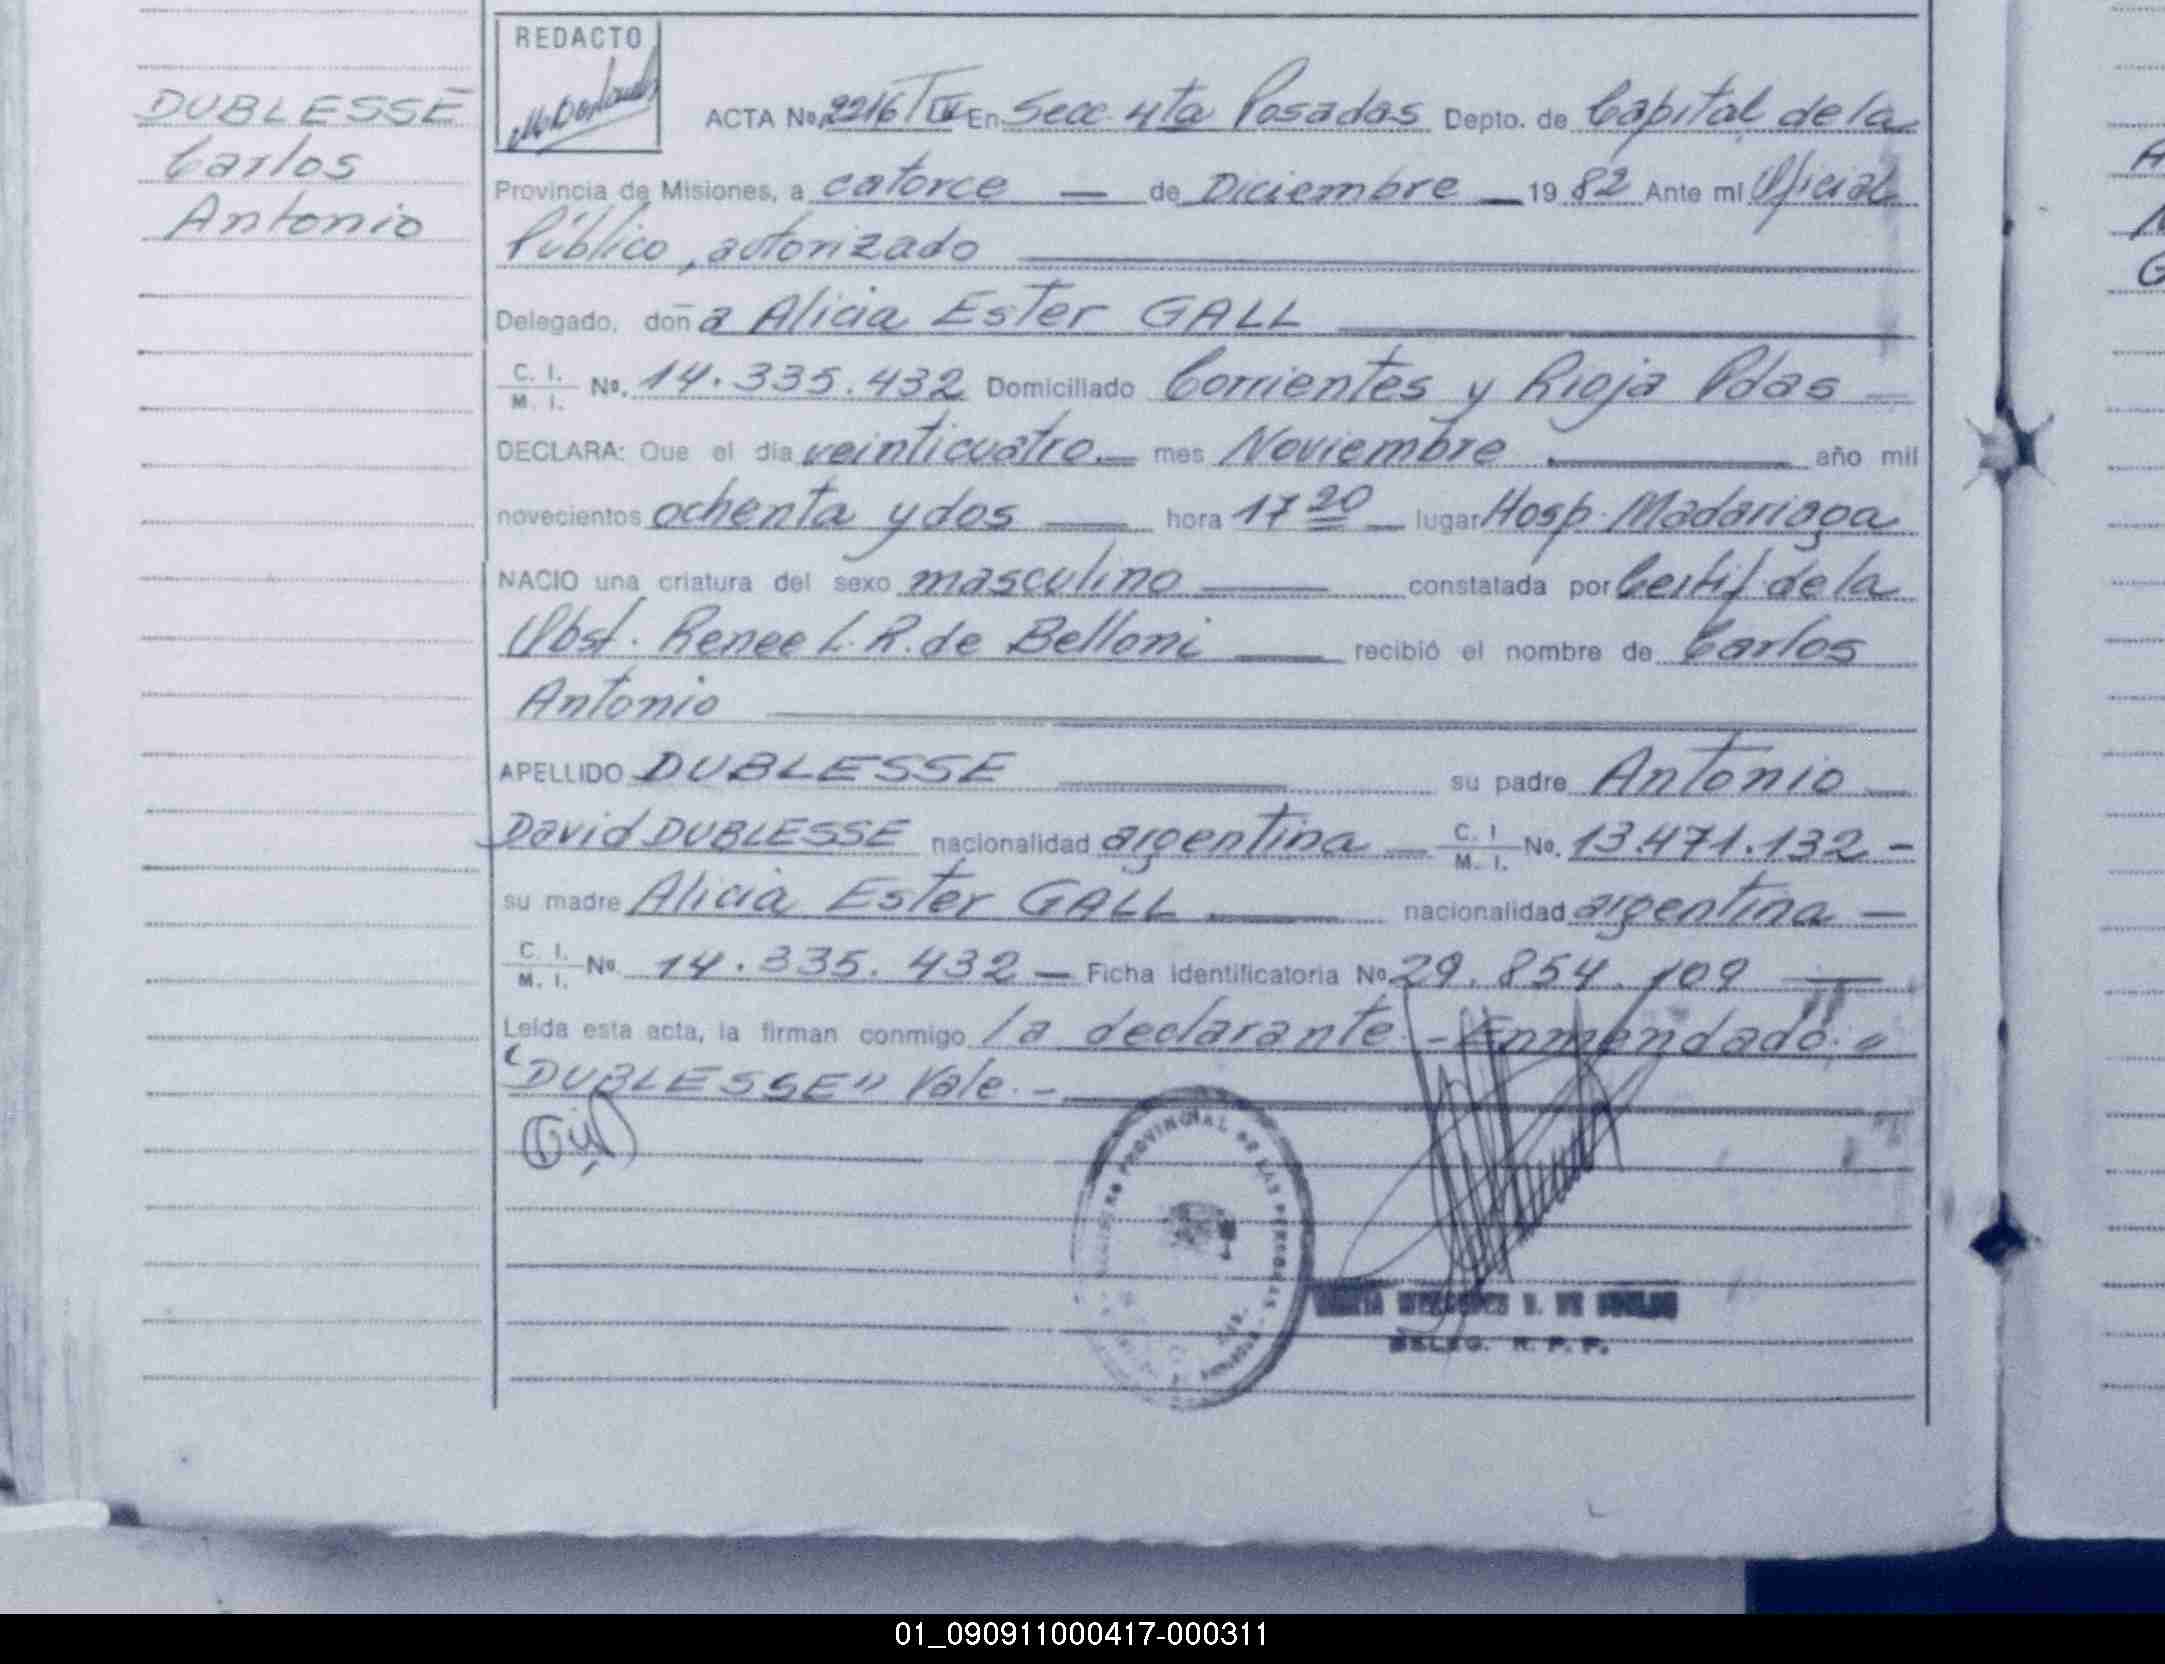 REDACTO
DUBLESSE
Carlos
Antonio
ACTA No. 2216 T IV En Secc. 4ta Posadas Depto. de Capital de la
Provincia de Misiones, a catorce — de Diciembre — 1982 Ante mi Oficial
Público, autorizado
Delegado, doña Alicia Ester GALL
C. I. / M. I. No. 14.335.432 Domiciliado Corrientes y Rioja Pdas —
DECLARA: Que el dia veinticuatro — mes Noviembre — año mil
novecientos ochenta y dos — hora 17 20 — lugar Hosp. Madariaga
NACIO una criatura del sexo masculino — constatada por Certif. de la
Obst. Renee L. R. de Belloni — recibió el nombre de Carlos
Antonio
APELLIDO DUBLESSE — su padre Antonio —
David DUBLESSE nacionalidad argentina — C. I / M. I. No. 13.471.132 -
su madre Alicia Ester GALL — nacionalidad argentina —
C. I. / M. I. No 14.335.432 — Ficha identificatoria No 29.854.109 —
Leída esta acta, la firman conmigo la declarante - Enmendado: "
"DUBLESSE" Vale. -
REGISTRO PROVINCIAL DE LAS PERSONAS
DELEG. R. P. P.
01_090911000417-000311